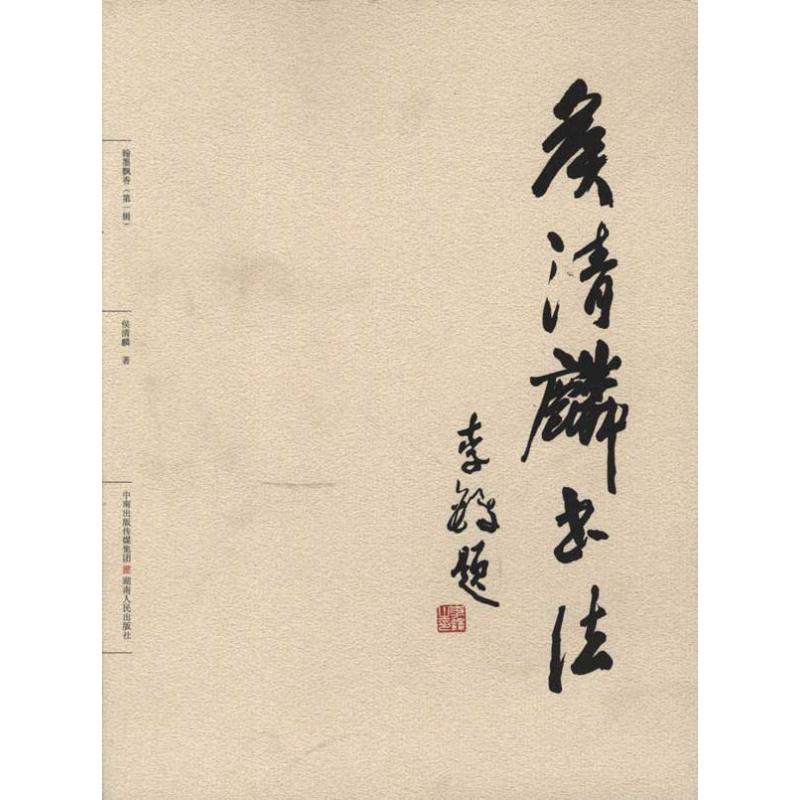 侯清麟书法
李铎题
翰墨飘香（第一辑）
侯清麟 著
中南出版传媒集团 湖南人民出版社